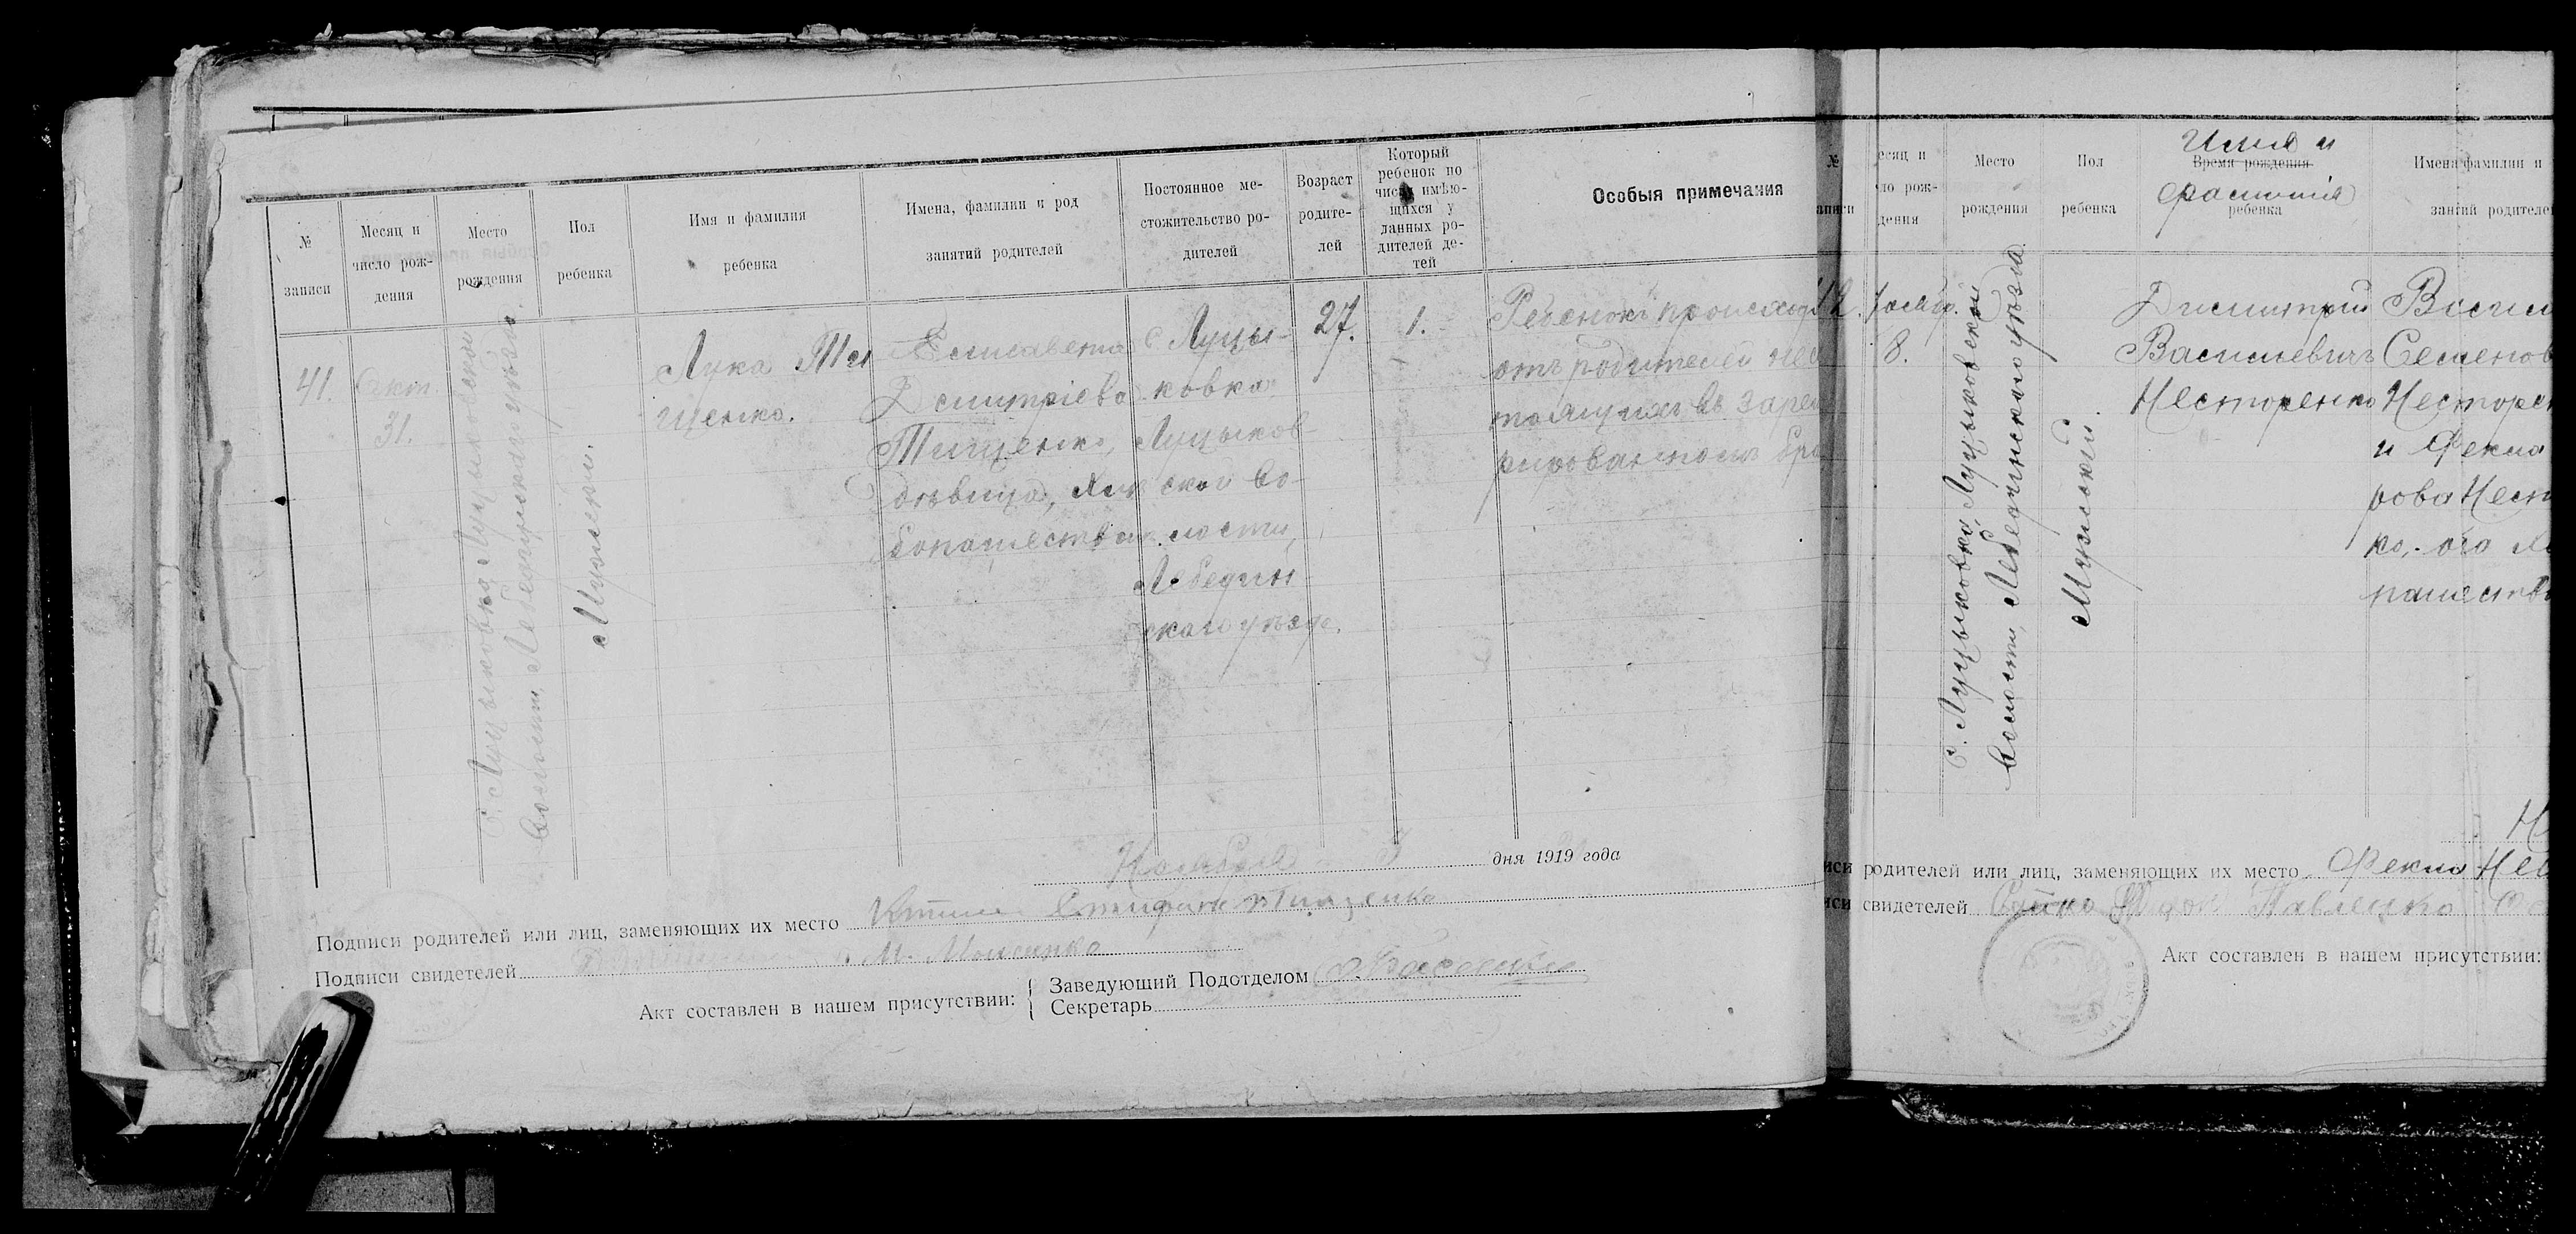 № записи
Месяц и число рождения
Место рождения
Пол ребенка
Имя и фамилия ребенка
Имена, фамилии и род занятий родителей
Постоянное местожительство родителей
Возраст родителей
Который ребенок по числу имѣющихся у данных родителей детей
Особыя примечания
41.
Окт.
31.
С. Луцыковка Луцыковской
волости, Лебединскаго уѣзда.
Мужеский.
Лука Ти
щенко.
Елисавета
Дмитріева
Тищенко,
дѣвица, хлѣ
бопашество
С Луцы-
ковка
Луцыков
ской во-
лости,
Лебедин
скаго уѣзда.
27.
1.
Ребенокъ происход
отъ родителей не
тоящихъ въ зареги
рированномъ бра
Ноября 3 дня 1919 года
Подписи родителей или лиц, заменяющих их место Тищенко
Подписи свидетелей
Акт составлен в нашем присутствии:
Заведующий Подотделом
Секретарь
№
аписи
есяц и
ло рож-
дения
Место
рождения
Пол
ребенка
Имя и
Время рождения
фамилія
ребенка
Имена фамилии и
занятий родителе
2.
Нояб.
8.
С. Луцыковка Луцыковской
волости, Лебединскаго уѣзда.
Мужский.
Димитрий
Васильевичъ
Нестеренко
Васил
Семенов
Нестерен
и Фекла
рова Нест
ко,
пашеств
иси родителей или лиц, заменяющих их место Фекла Нес
иси свидетелей Павленко
Акт составлен в нашем присутствии: